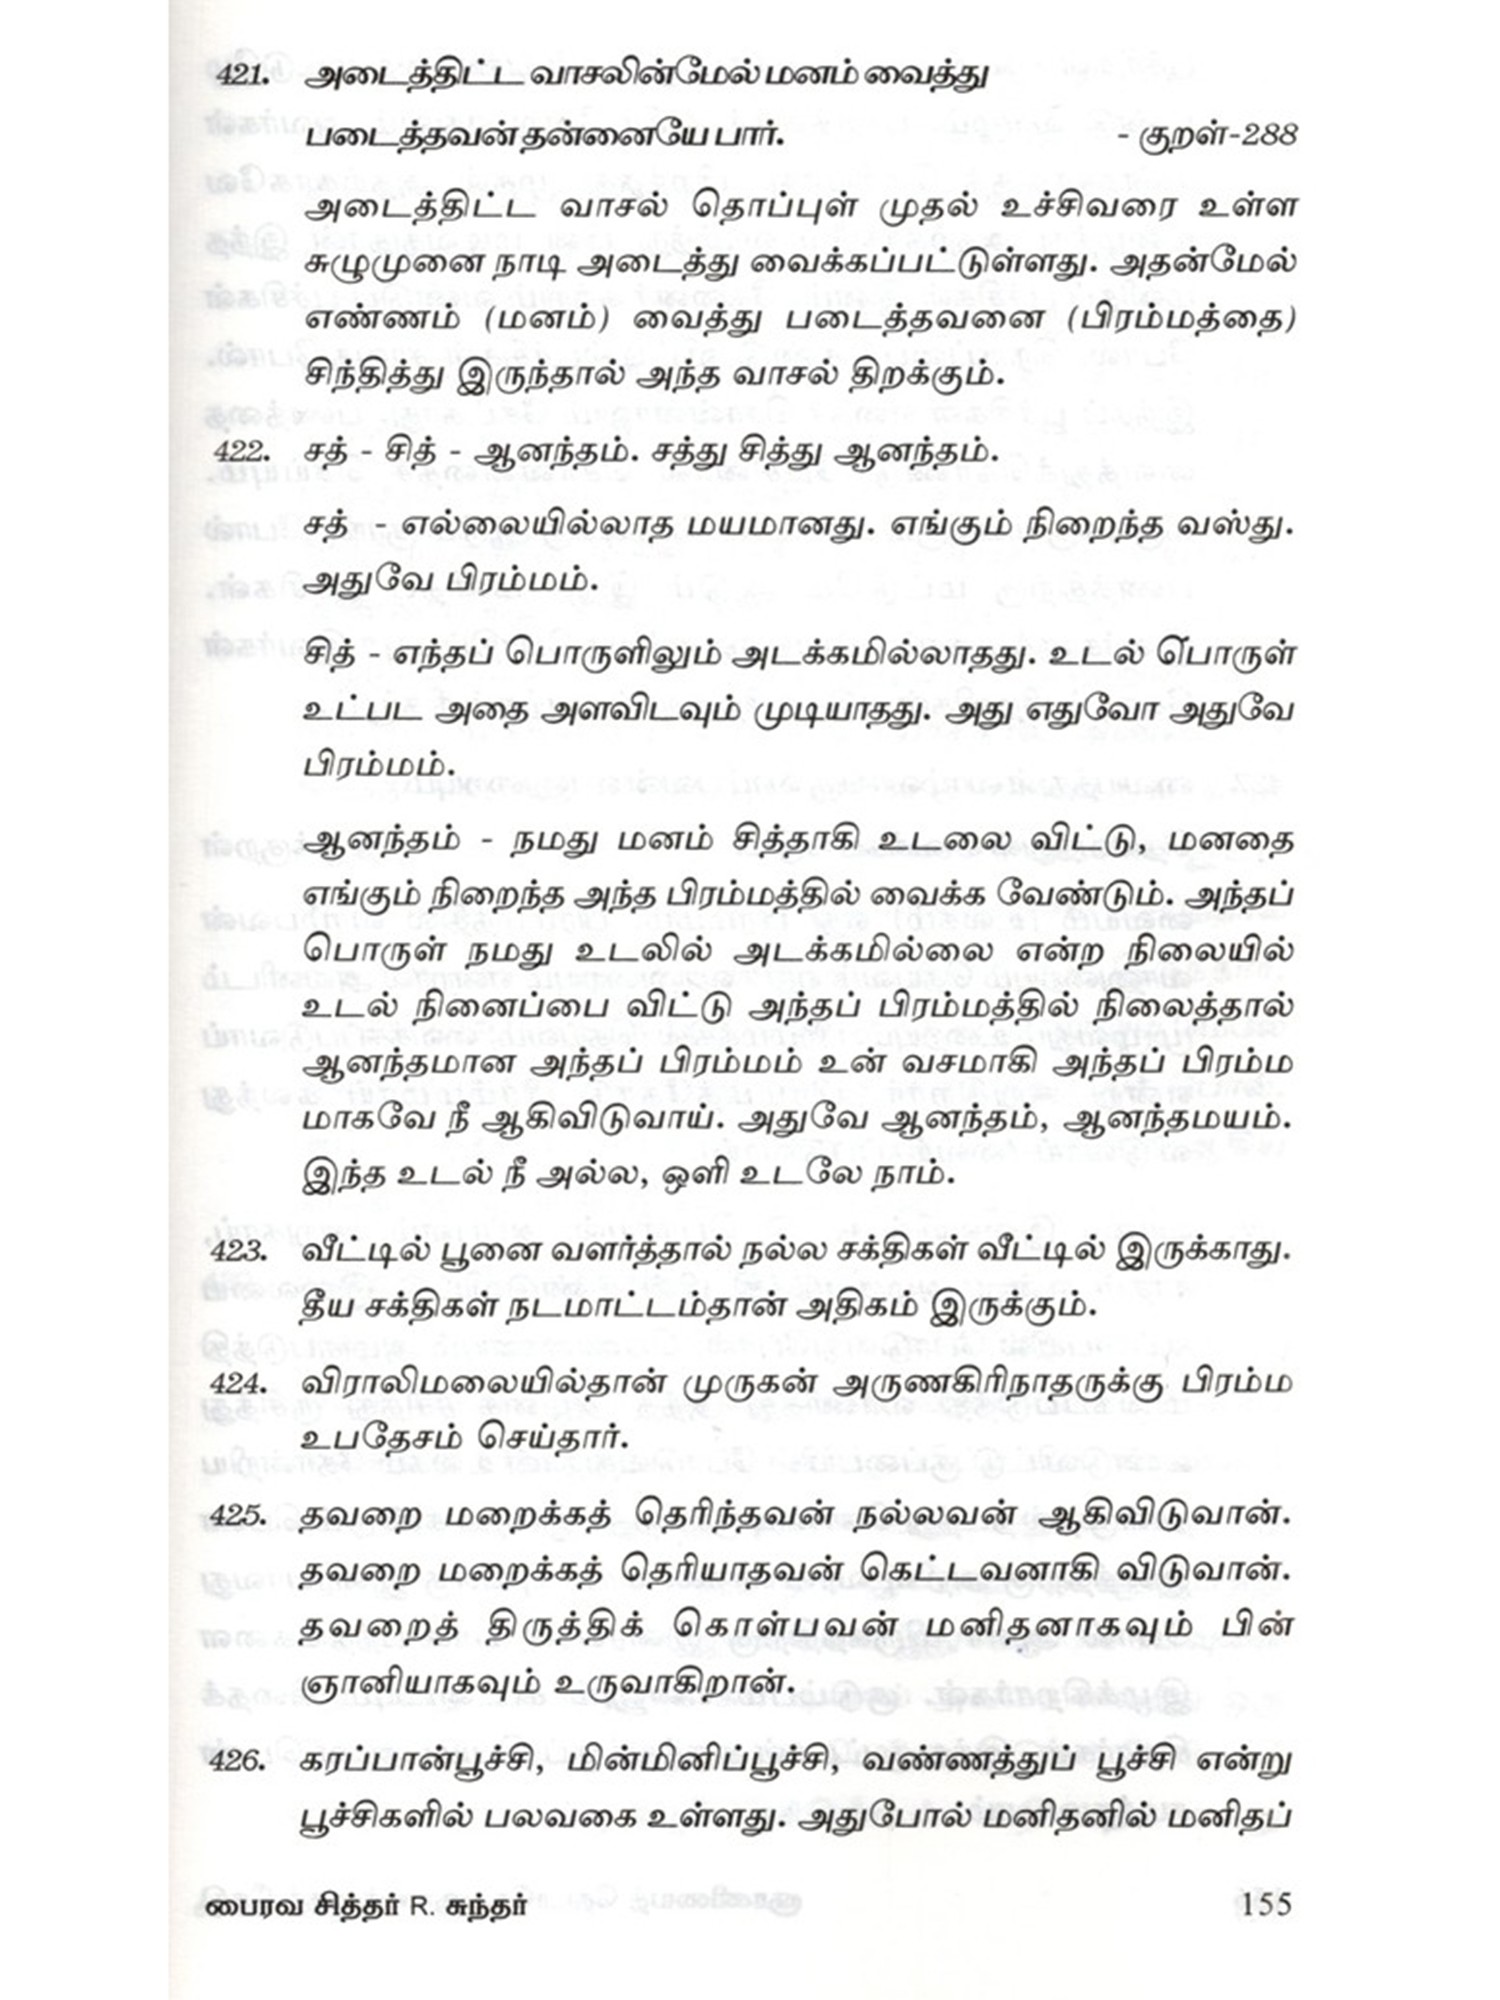 421. அடைத்திட்ட வாசலின்மேல் மனம் வைத்து
படைத்தவன் தன்னையே பார். - குறள்-288
அடைத்திட்ட வாசல் தொப்புள் முதல் உச்சிவரை உள்ள
சுழுமுனை நாடி அடைத்து வைக்கப்பட்டுள்ளது. அதன்மேல்
எண்ணம் (மனம்) வைத்து படைத்தவனை (பிரம்மத்தை)
சிந்தித்து இருந்தால் அந்த வாசல் திறக்கும்.
422. சத் - சித் - ஆனந்தம். சத்து சித்து ஆனந்தம்.
சத் - எல்லையில்லாத மயமானது. எங்கும் நிறைந்த வஸ்து.
அதுவே பிரம்மம்.
சித் - எந்தப் பொருளிலும் அடக்கமில்லாதது. உடல் பொருள்
உட்பட அதை அளவிடவும் முடியாதது. அது எதுவோ அதுவே
பிரம்மம்.
ஆனந்தம் - நமது மனம் சித்தாகி உடலை விட்டு, மனதை
எங்கும் நிறைந்த அந்த பிரம்மத்தில் வைக்க வேண்டும். அந்தப்
பொருள் நமது உடலில் அடக்கமில்லை என்ற நிலையில்
உடல் நினைப்பை விட்டு அந்தப் பிரம்மத்தில் நிலைத்தால்
ஆனந்தமான அந்தப் பிரம்மம் உன் வசமாகி அந்தப் பிரம்ம
மாகவே நீ ஆகிவிடுவாய். அதுவே ஆனந்தம், ஆனந்தமயம்.
இந்த உடல் நீ அல்ல, ஒளி உடலே நாம்.
423. வீட்டில் பூனை வளர்த்தால் நல்ல சக்திகள் வீட்டில் இருக்காது.
தீய சக்திகள் நடமாட்டம்தான் அதிகம் இருக்கும்.
424. விராலிமலையில்தான் முருகன் அருணகிரிநாதருக்கு பிரம்ம
உபதேசம் செய்தார்.
425. தவறை மறைக்கத் தெரிந்தவன் நல்லவன் ஆகிவிடுவான்.
தவறை மறைக்கத் தெரியாதவன் கெட்டவனாகி விடுவான்.
தவறைத் திருத்திக் கொள்பவன் மனிதனாகவும் பின்
ஞானியாகவும் உருவாகிறான்.
426. கரப்பான்பூச்சி, மின்மினிப்பூச்சி, வண்ணத்துப் பூச்சி என்று
பூச்சிகளில் பலவகை உள்ளது. அதுபோல் மனிதனில் மனிதப்
பைரவ சித்தர் R. சுந்தர் 155